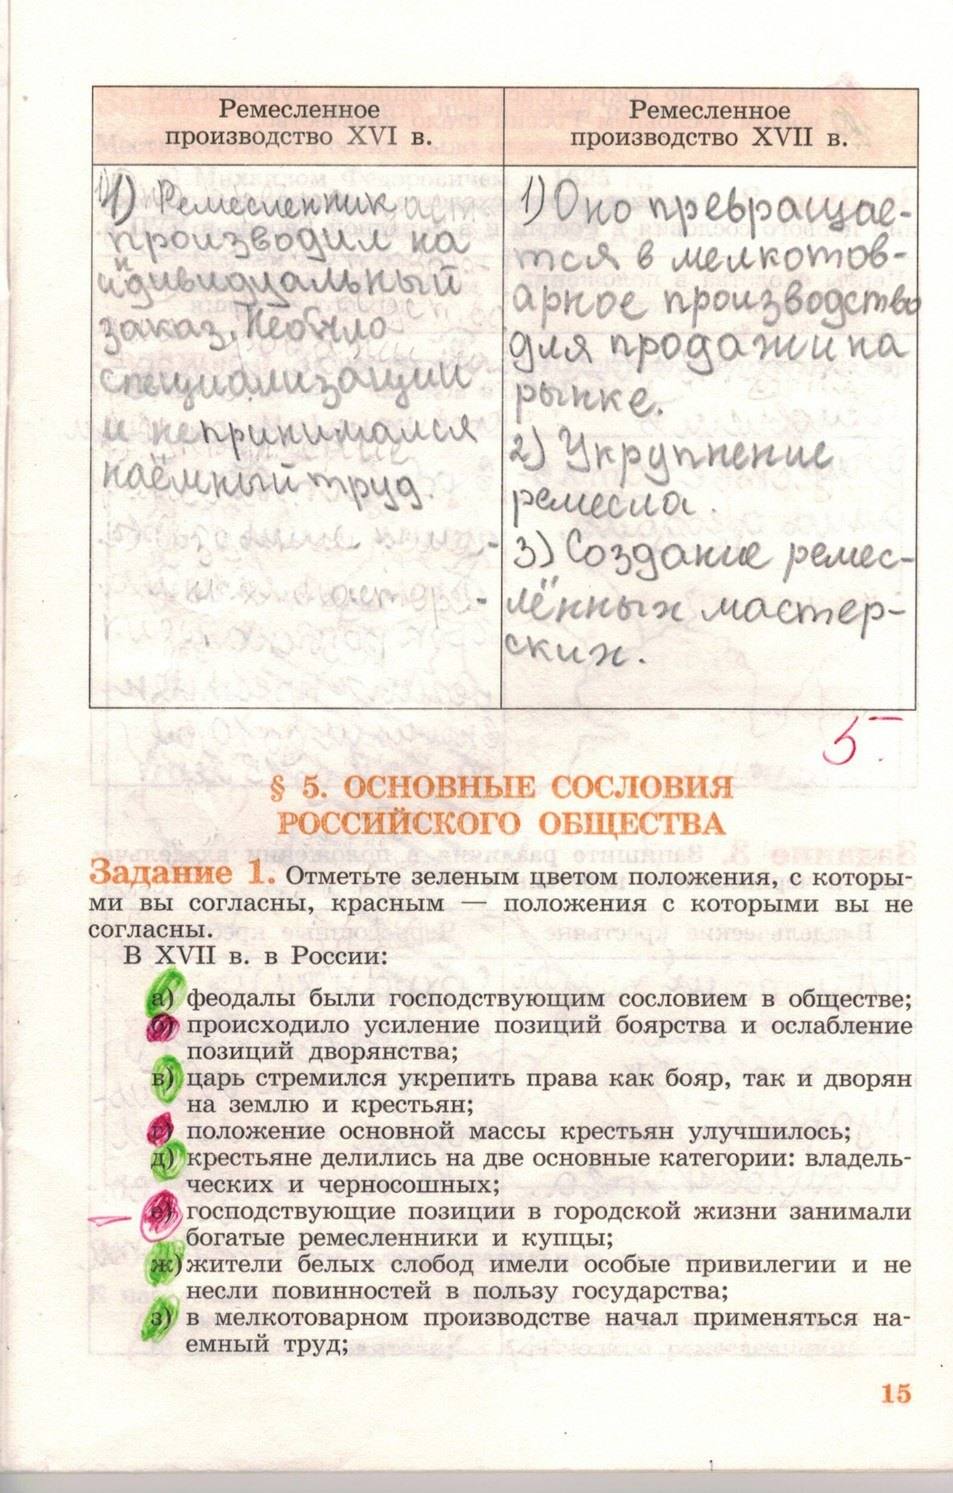 Ремесленное
производство XVI в.
1) Ремесленник,
производил на
индивидуальный
заказ. Не было
специализации
и непринимался
наёмный труд.
Ремесленное
производство XVII в.
1) Оно превращае-
тся в мелкотов-
арное производство
для продажи на
рынке.
2) Укрупнение
ремесла.
3) Создание ремес-
лённых мастер-
ских.
5-
§ 5. ОСНОВНЫЕ СОСЛОВИЯ
РОССИЙСКОГО ОБЩЕСТВА
Задание 1. Отметьте зеленым цветом положения, с которы-
ми вы согласны, красным — положения с которыми вы не
согласны.
В XVII в. в России:
а) феодалы были господствующим сословием в обществе;
б) происходило усиление позиций боярства и ослабление
позиций дворянства;
в) царь стремился укрепить права как бояр, так и дворян
на землю и крестьян;
г) положение основной массы крестьян улучшилось;
д) крестьяне делились на две основные категории: владель-
ческих и черносошных;
е) господствующие позиции в городской жизни занимали
богатые ремесленники и купцы;
ж) жители белых слобод имели особые привилегии и не
несли повинностей в пользу государства;
з) в мелкотоварном производстве начал применяться на-
емный труд;
15